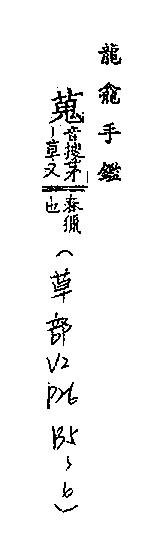 龍龕手鑑
蒐音搜茅丨草又春獵也(草部V2 P26 B5、6)